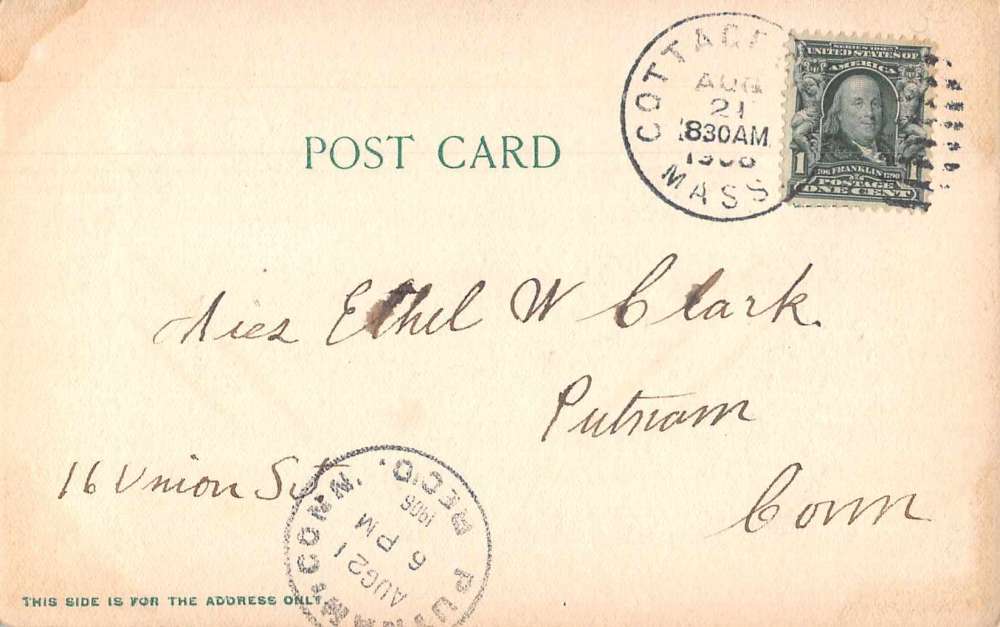 COTTAGE
AUG
21
830AM
1906
MASS
SERIES 1902
UNITED STATES OF
AMERICA
1706 FRANKLIN 1790
1 POSTAGE 1
ONE CENT
POST CARD
Miss Ethel W Clark.
Putnam
Conn
16 Union St
PUTNAM, CONN. REC'D.
AUG 21
6 PM
1906
THIS SIDE IS FOR THE ADDRESS ONLY.